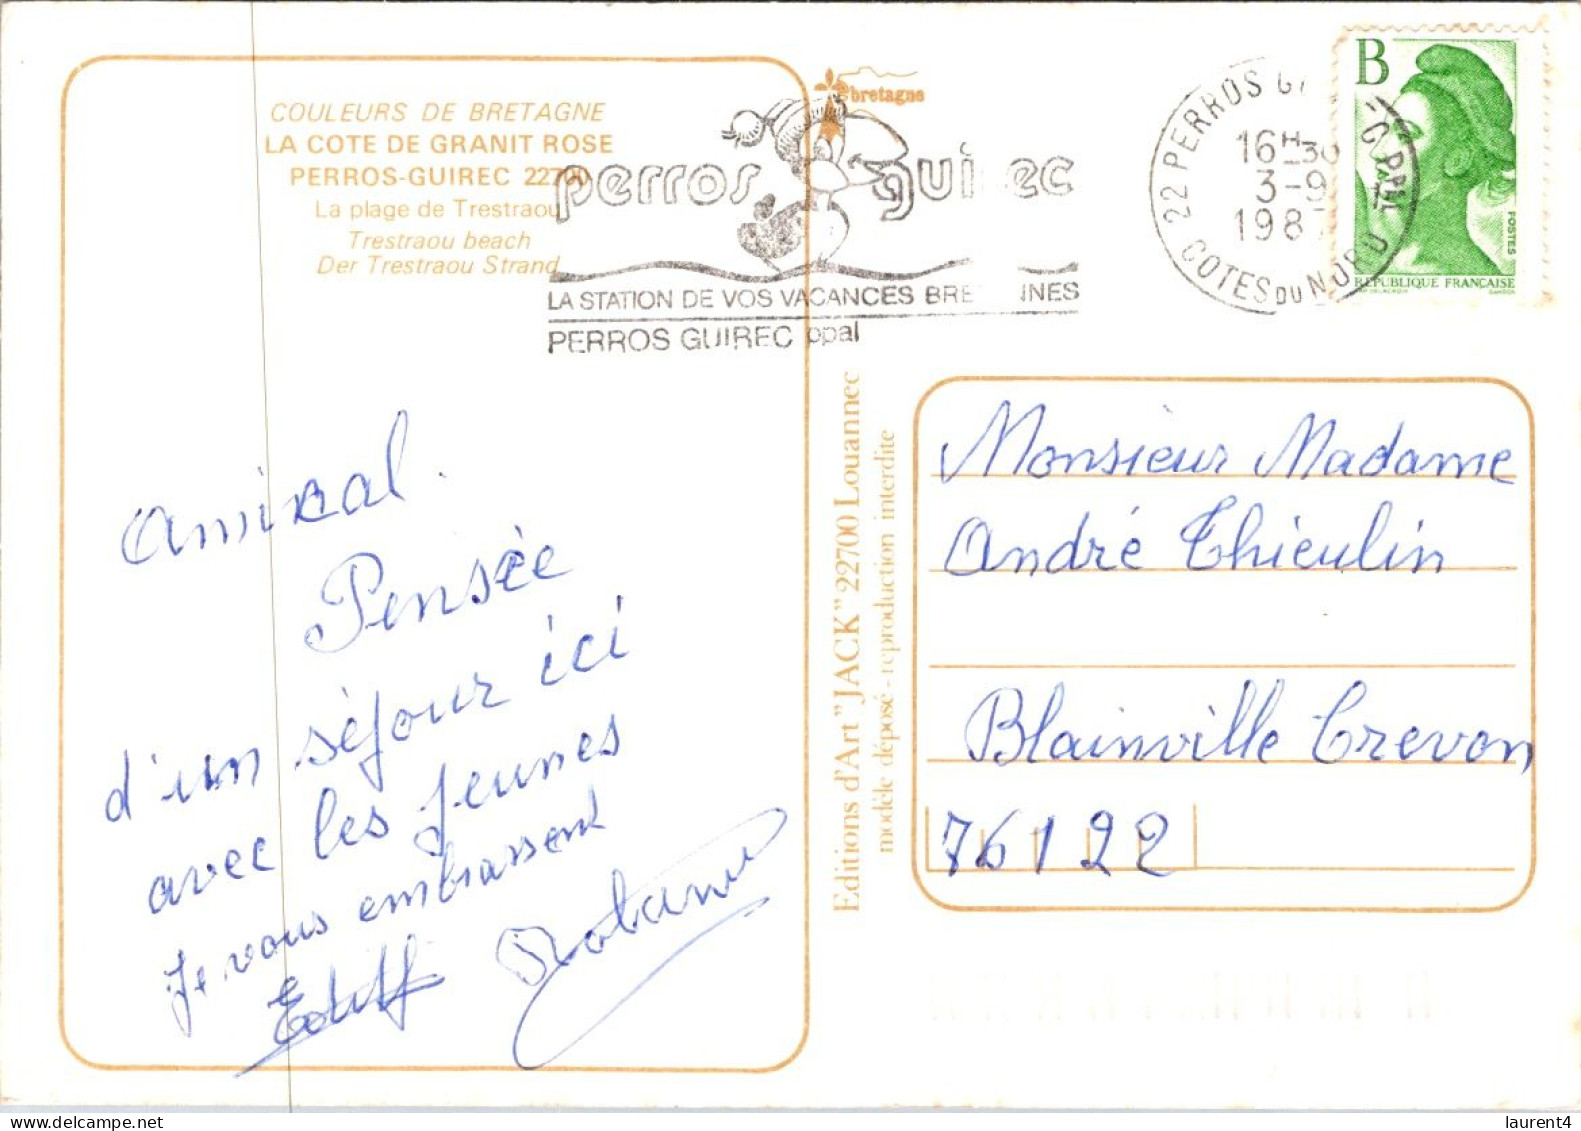 COULEURS DE BRETAGNE
LA COTE DE GRANIT ROSE
PERROS-GUIREC 22700
La plage de Trestraou
Trestraou beach
Der Trestraou Strand
bretagne
perros guirec
LA STATION DE VOS VACANCES BRE INES
PERROS GUIREC ppal
22 PERROS G C PPAL
16H 30
3-9
198
COTES DU NORD
B
POSTES
REPUBLIQUE FRANÇAISE
amical.
Pensée
d'un séjour ici
avec les jeunes
Je vous embrassent
Edith
Editions d'Art "JACK" 22700 Louannec
modèle déposé - reproduction interdite
Monsieur Madame
André Thieulin
Blainville Crevon
76122
laurent4